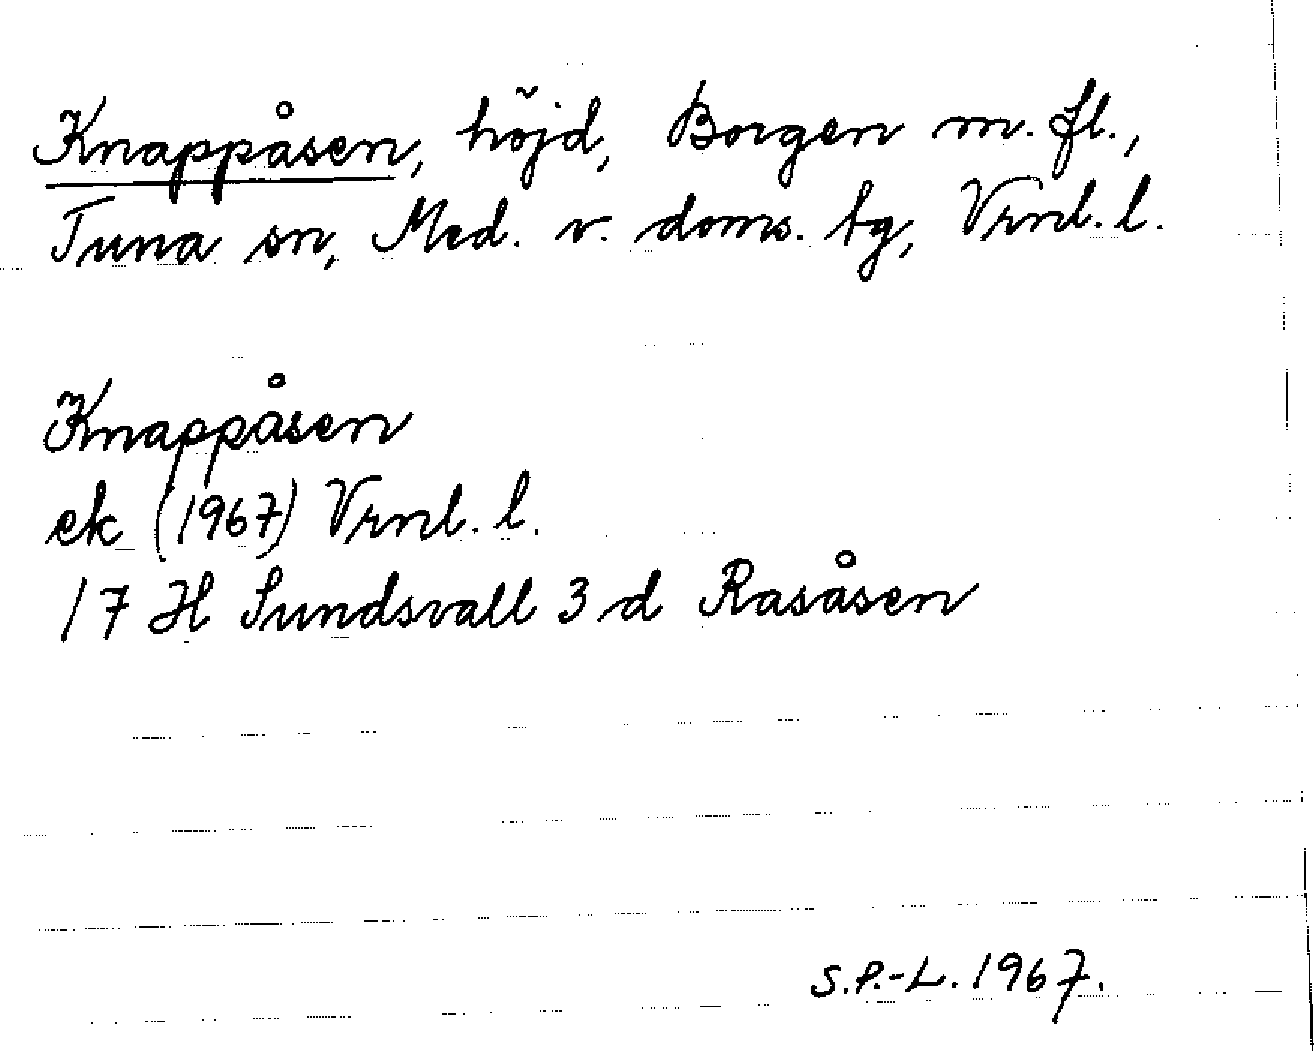 Knappåsen, höjd, Borgen m. fl.,
Tuna sn, Med. v. doms. tg, Vrnl. l.
Knappåsen
ek (1967) Vrnl. l.
17 H Sundsvall 3 d Rasåsen
S.P.-L. 1967.